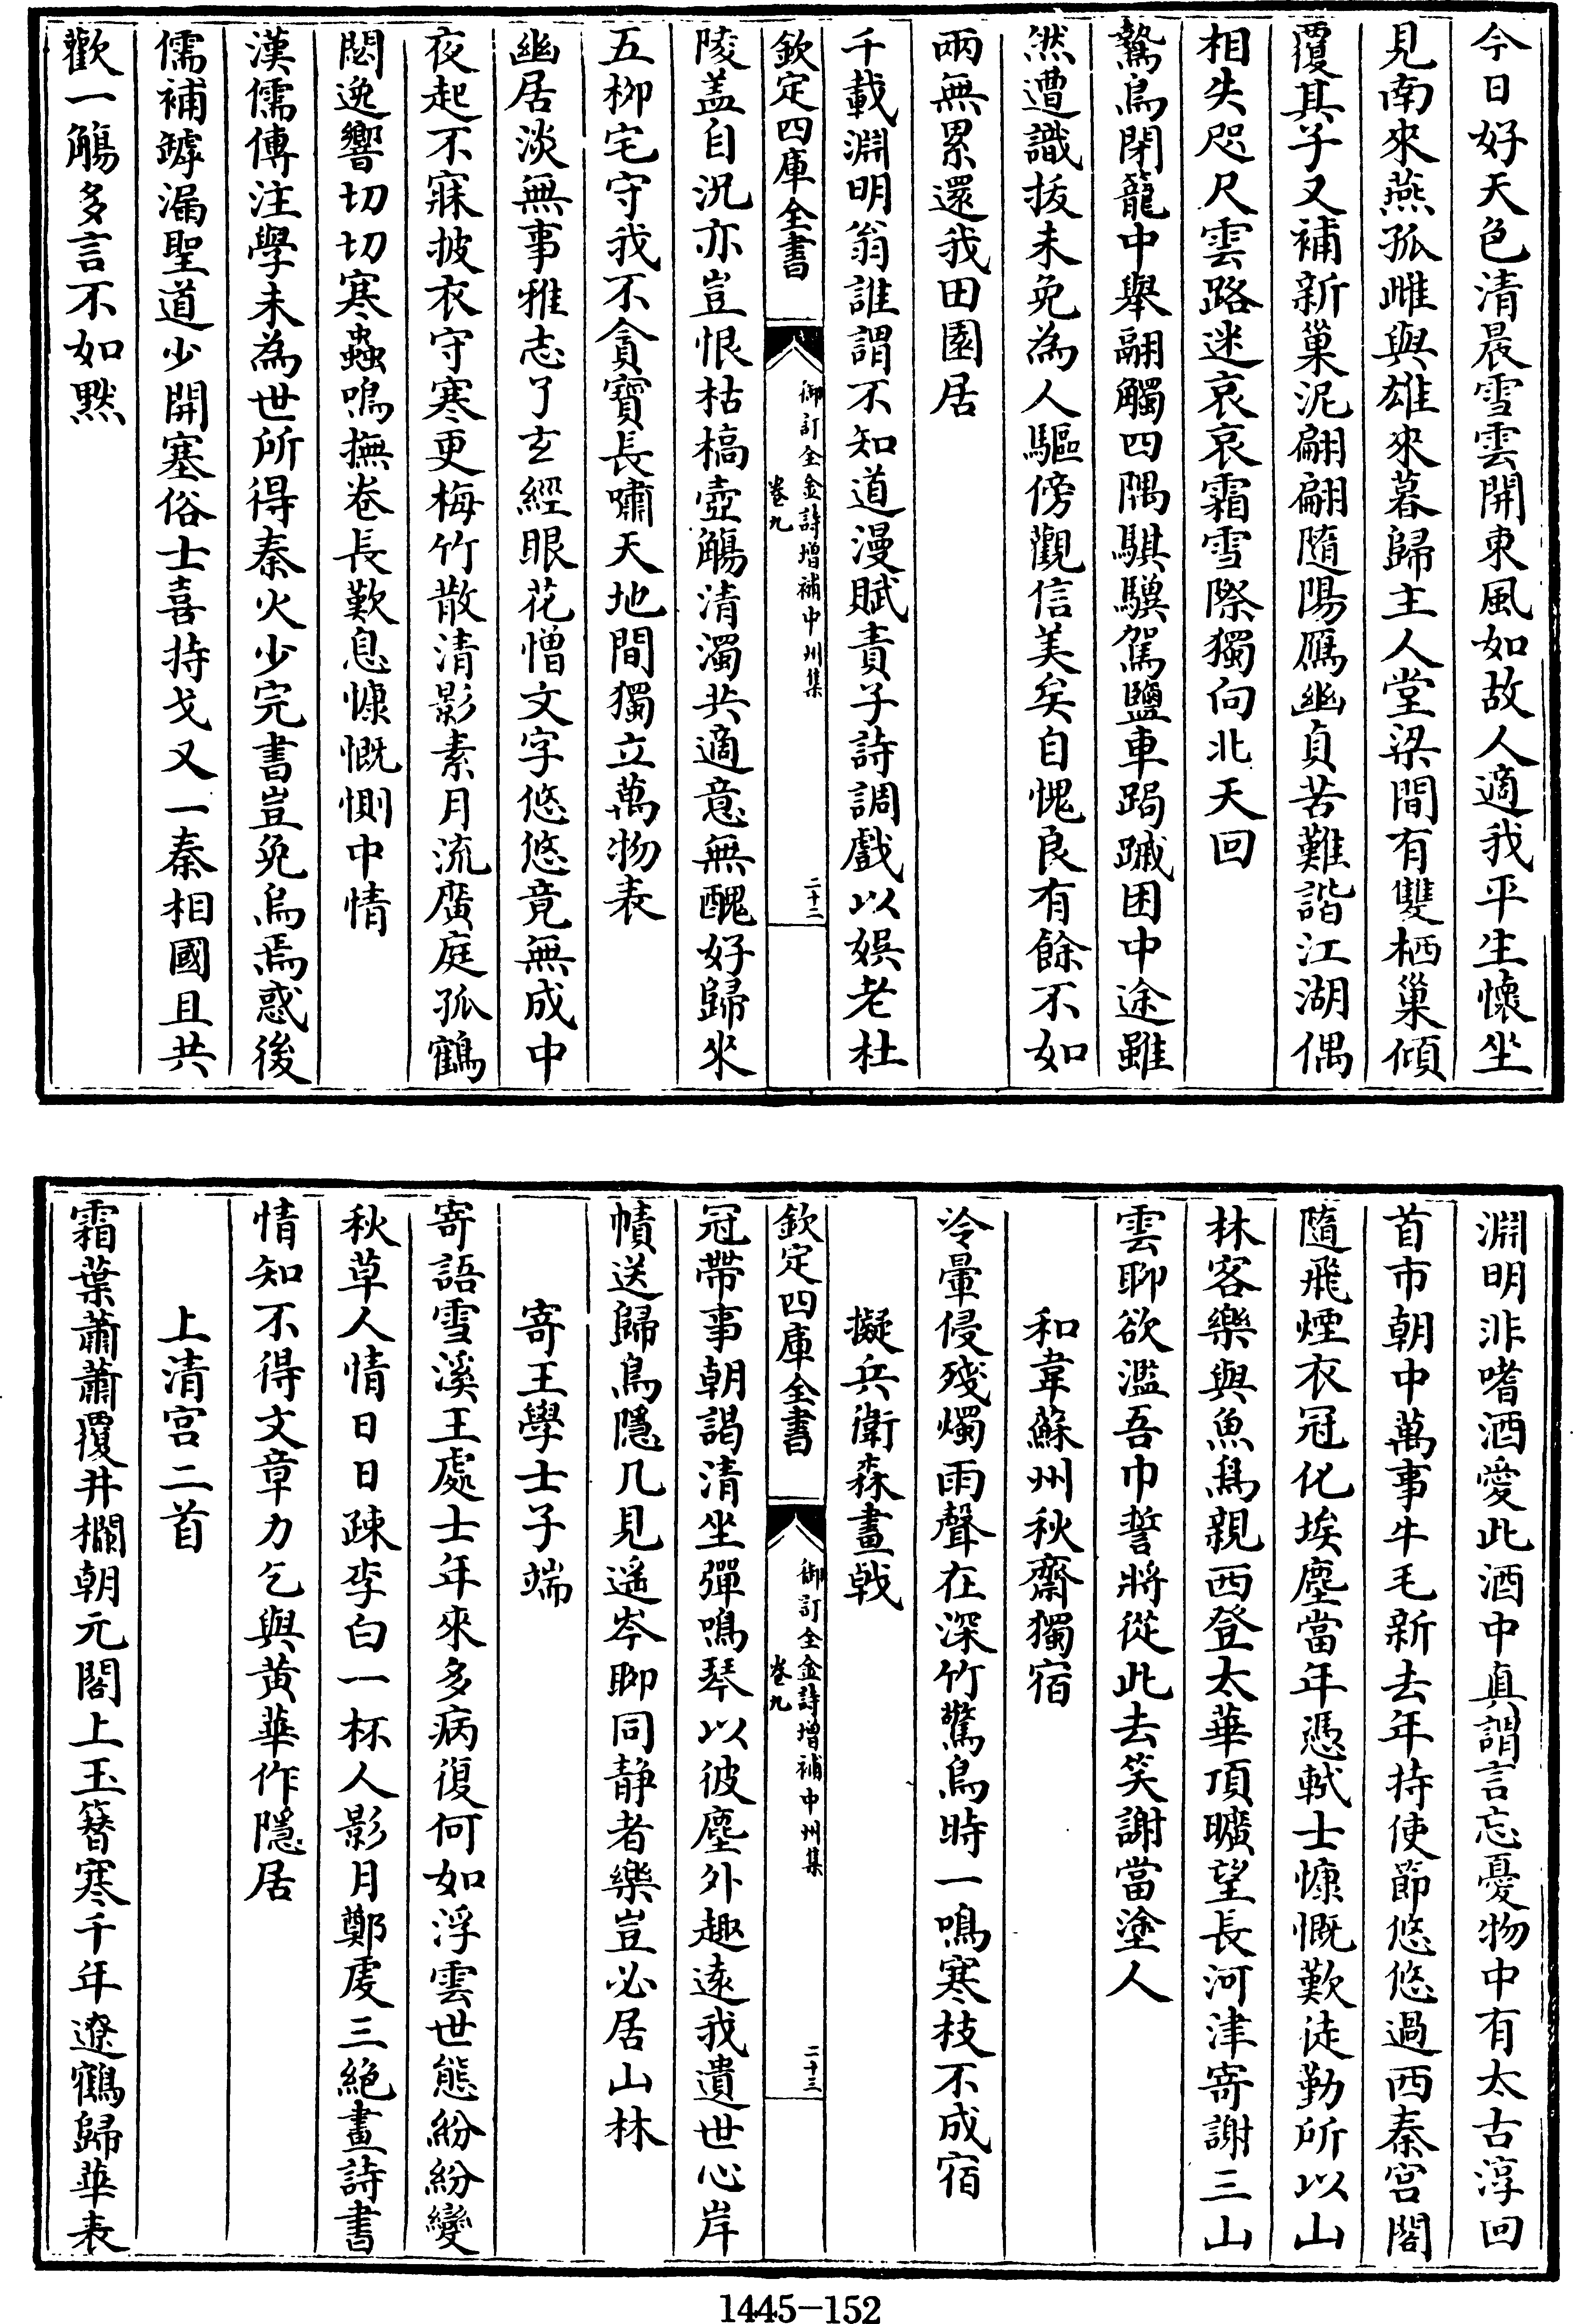 今日好天色清晨雪雲開東風如故人適我平生懷坐
見南來燕孤雌與雄來暮歸主人堂梁間有雙栖巢傾
覆其子又補新巢泥翩翩隨陽鴈幽貞苦難諧江湖偶
相失咫尺雲路迷哀哀霜雪際獨向北天回
鷙鳥閉籠中舉翮觸四隅騏驥駕鹽車跼蹐困中途雖
然遭識拔未免為人驅傍觀信美矣自愧良有餘不如
兩無累還我田園居
千載淵明翁誰謂不知道漫賦責子詩調戲以娯老杜
欽定四庫全書
御訂全金詩增補中州集
卷九
二十二
陵盖自況亦豈恨枯槁壺觴清濁共適意無醜好歸來
五栁宅守我不貪寳長嘯天地間獨立萬物表
幽居淡無事雅志了玄經眼花憎文字悠悠竟無成中
夜起不寐披衣守寒更梅竹散清影素月流廣庭孤鶴
閟逸響切切寒蟲鳴撫卷長歎息慷慨惻中情
漢儒傳注學未為世所得秦火少完書豈免烏焉惑後
儒補罅漏聖道少開塞俗士喜持戈又一秦相國且共
歡一觴多言不如黙
淵明非嗜酒愛此酒中真謂言忘憂物中有太古淳回
首市朝中萬事牛毛新去年持使節悠悠過西秦宫閣
隨飛煙衣冠化埃塵當年憑軾士慷慨歎徒勤所以山
林客樂與魚鳥親西登太華頂曠望長河津寄謝三山
雲聊欲濫吾巾誓將從此去笑謝當塗人
和韋蘇州秋齋獨宿
冷暈侵殘燭雨聲在深竹驚鳥時一鳴寒枝不成宿
擬兵衛森畫戟
欽定四庫全書
御訂全金詩增補中州集
卷九
二十三
冠帶事朝謁清坐彈鳴琴以彼塵外趣逺我遺世心岸
幘送歸鳥隱几見遥岑聊同静者樂豈必居山林
寄王學士子端
寄語雪溪王處士年來多病復何如浮雲世態紛紛變
秋草人情日日疎李白一杯人影月鄭虔三絶畫詩書
情知不得文章力乞與黄華作隱居
上清宫二首
霜葉蕭蕭覆井欄朝元閣上玉簪寒千年遼鶴歸華表
1445-152